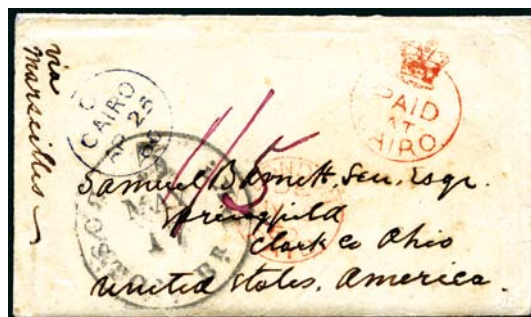 via
Marseilles
CAIRO
AP 25
PAID
AT
CAIRO
1/5
Samuel Barnett, Sen, Esqr.
Springfield
Clark Co Ohio
United States, America.
MAY